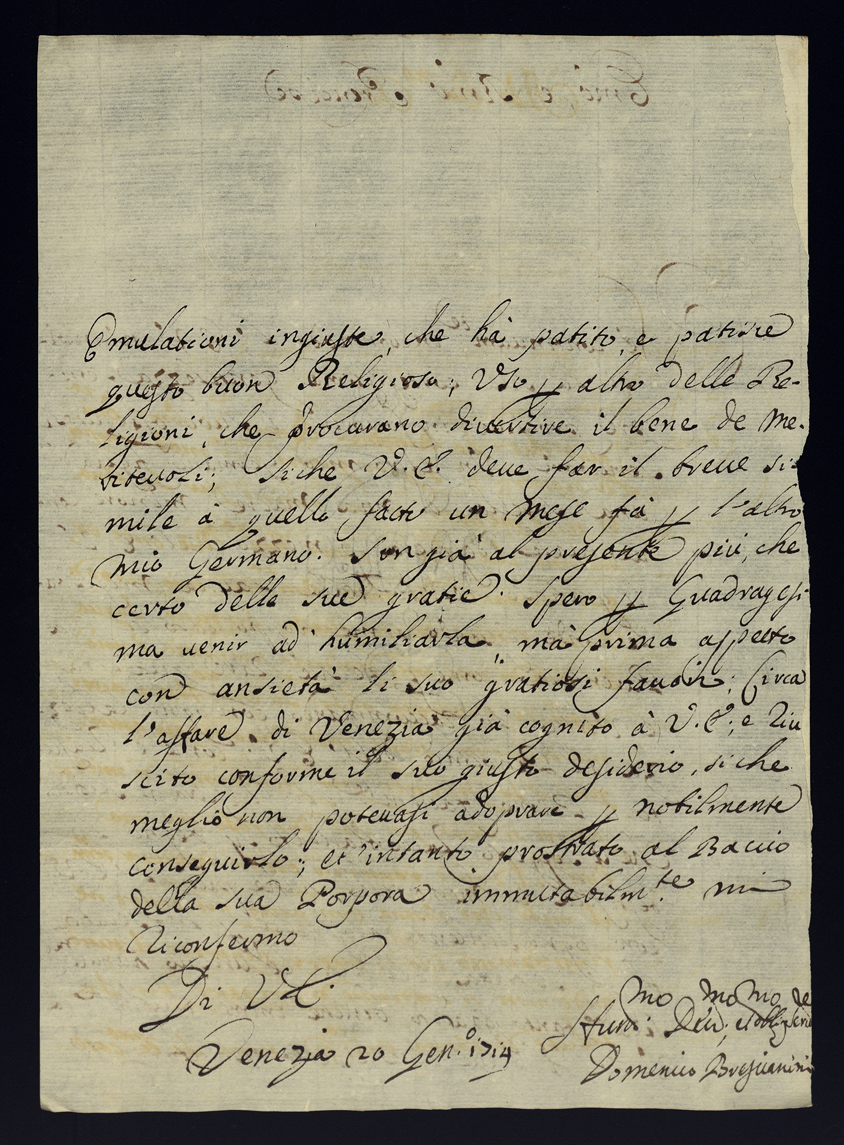 Emulationi ingiuste, che hà patito, e patisce
questo buon Religioso, uso p altro delle Re-
ligioni, che procurano divertire il bene de Me-
ritevoli; siche V. E. deve far il breve si
mile à quello facto un mese fà p l'altro
mio Germano. Son già al presente più, che
certo delle sue gratie. Spero p Quadragesi
ma venir ad humiliarla, mà prima aspetto
con ansietà li suo gratiosi favori; Circa
l'affare di Venezia già cognito à V. E., e riu
scito conforme il suo giusto desiderio, si che
meglio non potevasi adoprare p nobilmente
conseguirlo; et intanto prostrato al Baccio
della sua Porpora immutabilm.te mi
riconfermo
Di V. E.
Venezia 20 Gen.o 1714
mo mo mo
Hum: Dev: et obl:
Domenico Brescianini